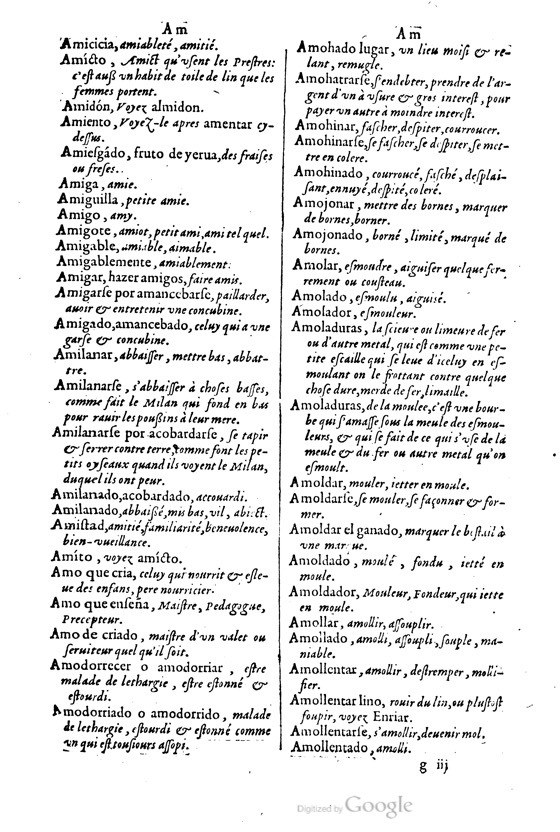 Am
Amicicia, amiableté, amitié.
Amícto, Amict qu'vsent les Prestres:
c'est auß vn habit de toile de lin que les
femmes portent.
Amidón, Voyez almidon.
Amiento, Voyez-le apres amentar cy-
dessus.
Amiesgádo, fruto de yerua, des fraises
ou freses.
Amiga, amie.
Amiguilla, petite amie.
Amigo, amy.
Amigote, amiot, petit ami, ami tel quel.
Amigable, amiable, aimable.
Amigablemente, amiablement.
Amigar, hazer amigos, faire amis.
Amigarse por amancebarse, paillarder,
auoir & entretenir vne concubine.
Amigado, amancebado, celuy qui a vne
garse & concubine.
Amilanar, abbaisser, mettre bas, abbat-
tre.
Amilanarse, s'abbaisser à choses basses,
comme fait le Milan qui fond en bas
pour rauir les poußins à leur mere.
Amilanarse por acobardarse, se tapir
& serrer contre terre, comme font les pe-
tits oyseaux quand ils voyent le Milan,
duquel ils ont peur.
Amilanado, acobardado, accouardi.
Amilanado, abbaißé, mis bas, vil, abiect.
Amistad, amitié, familiarité, beneuolence,
bien-vueillance.
Amíto, voyez amícto.
Amo que cria, celuy qui nourrit & esle-
ue des enfans, pere nourricier.
Amo que enseña, Maistre, Pedagogue,
Precepteur.
Amo de criado, maistre d'vn valet ou
seruiteur quel qu'il soit.
Amodorrecer o amodorriar, estre
malade de lethargie, estre estonné &
estourdi.
Amodorriado o amodorrido, malade
de lethargie, estourdi & estonné comme
vn qui est tousiours assopi.
Am
Amohado lugar, vn lieu moisi & re-
lant, remugle.
Amohatrarse, s'endebter, prendre de l'ar-
gent d'vn à vsure & gros interest, pour
payer vn autre à moindre interest.
Amohinar, fascher, despiter, courroucer.
Amohinarse, se fascher, se despiter, se met-
tre en colere.
Amohinado, courroucé, fasché, desplai-
sant, ennuyé, despité, coleré.
Amojonar, mettre des bornes, marquer
de bornes, borner.
Amojonado, borné, limité, marqué de
bornes.
Amolar, esmoudre, aiguiser quelque fer-
rement ou cousteau.
Amolado, esmoulu, aiguisé.
Amolador, esmouleur.
Amoladuras, la scieure ou limeure de fer
ou d'autre metal, qui est comme vne pe-
tite escaille qui se leue d'iceluy en es-
moulant on le frottant contre quelque
chose dure, merde de fer, limaille.
Amoladuras, de la moulee, c'est vne bour-
be qui s'amasse sous la meule des esmou-
leurs, & qui se fait de ce qui s'vse de la
meule & du fer ou autre metal qu'on
esmoult.
Amoldar, mouler, ietter en moule.
Amoldarse, se mouler, se façonner & for-
mer.
Amoldar el ganado, marquer le bestail à
vne marque.
Amoldado, moulé, fondu, ietté en
moule.
Amoldador, Mouleur, Fondeur, qui iette
en moule.
Amollar, amollir, assouplir.
Amollado, amolli, assoupli, souple, ma-
niable.
Amollentar, amollir, destremper, molli-
fier.
Amollentar lino, rouir du lin, ou plustost
foupir, voyez Enriar.
Amollentarse, s'amollir, deuenir mol.
Amollentado, amolli.
g iij
Digitized by Google